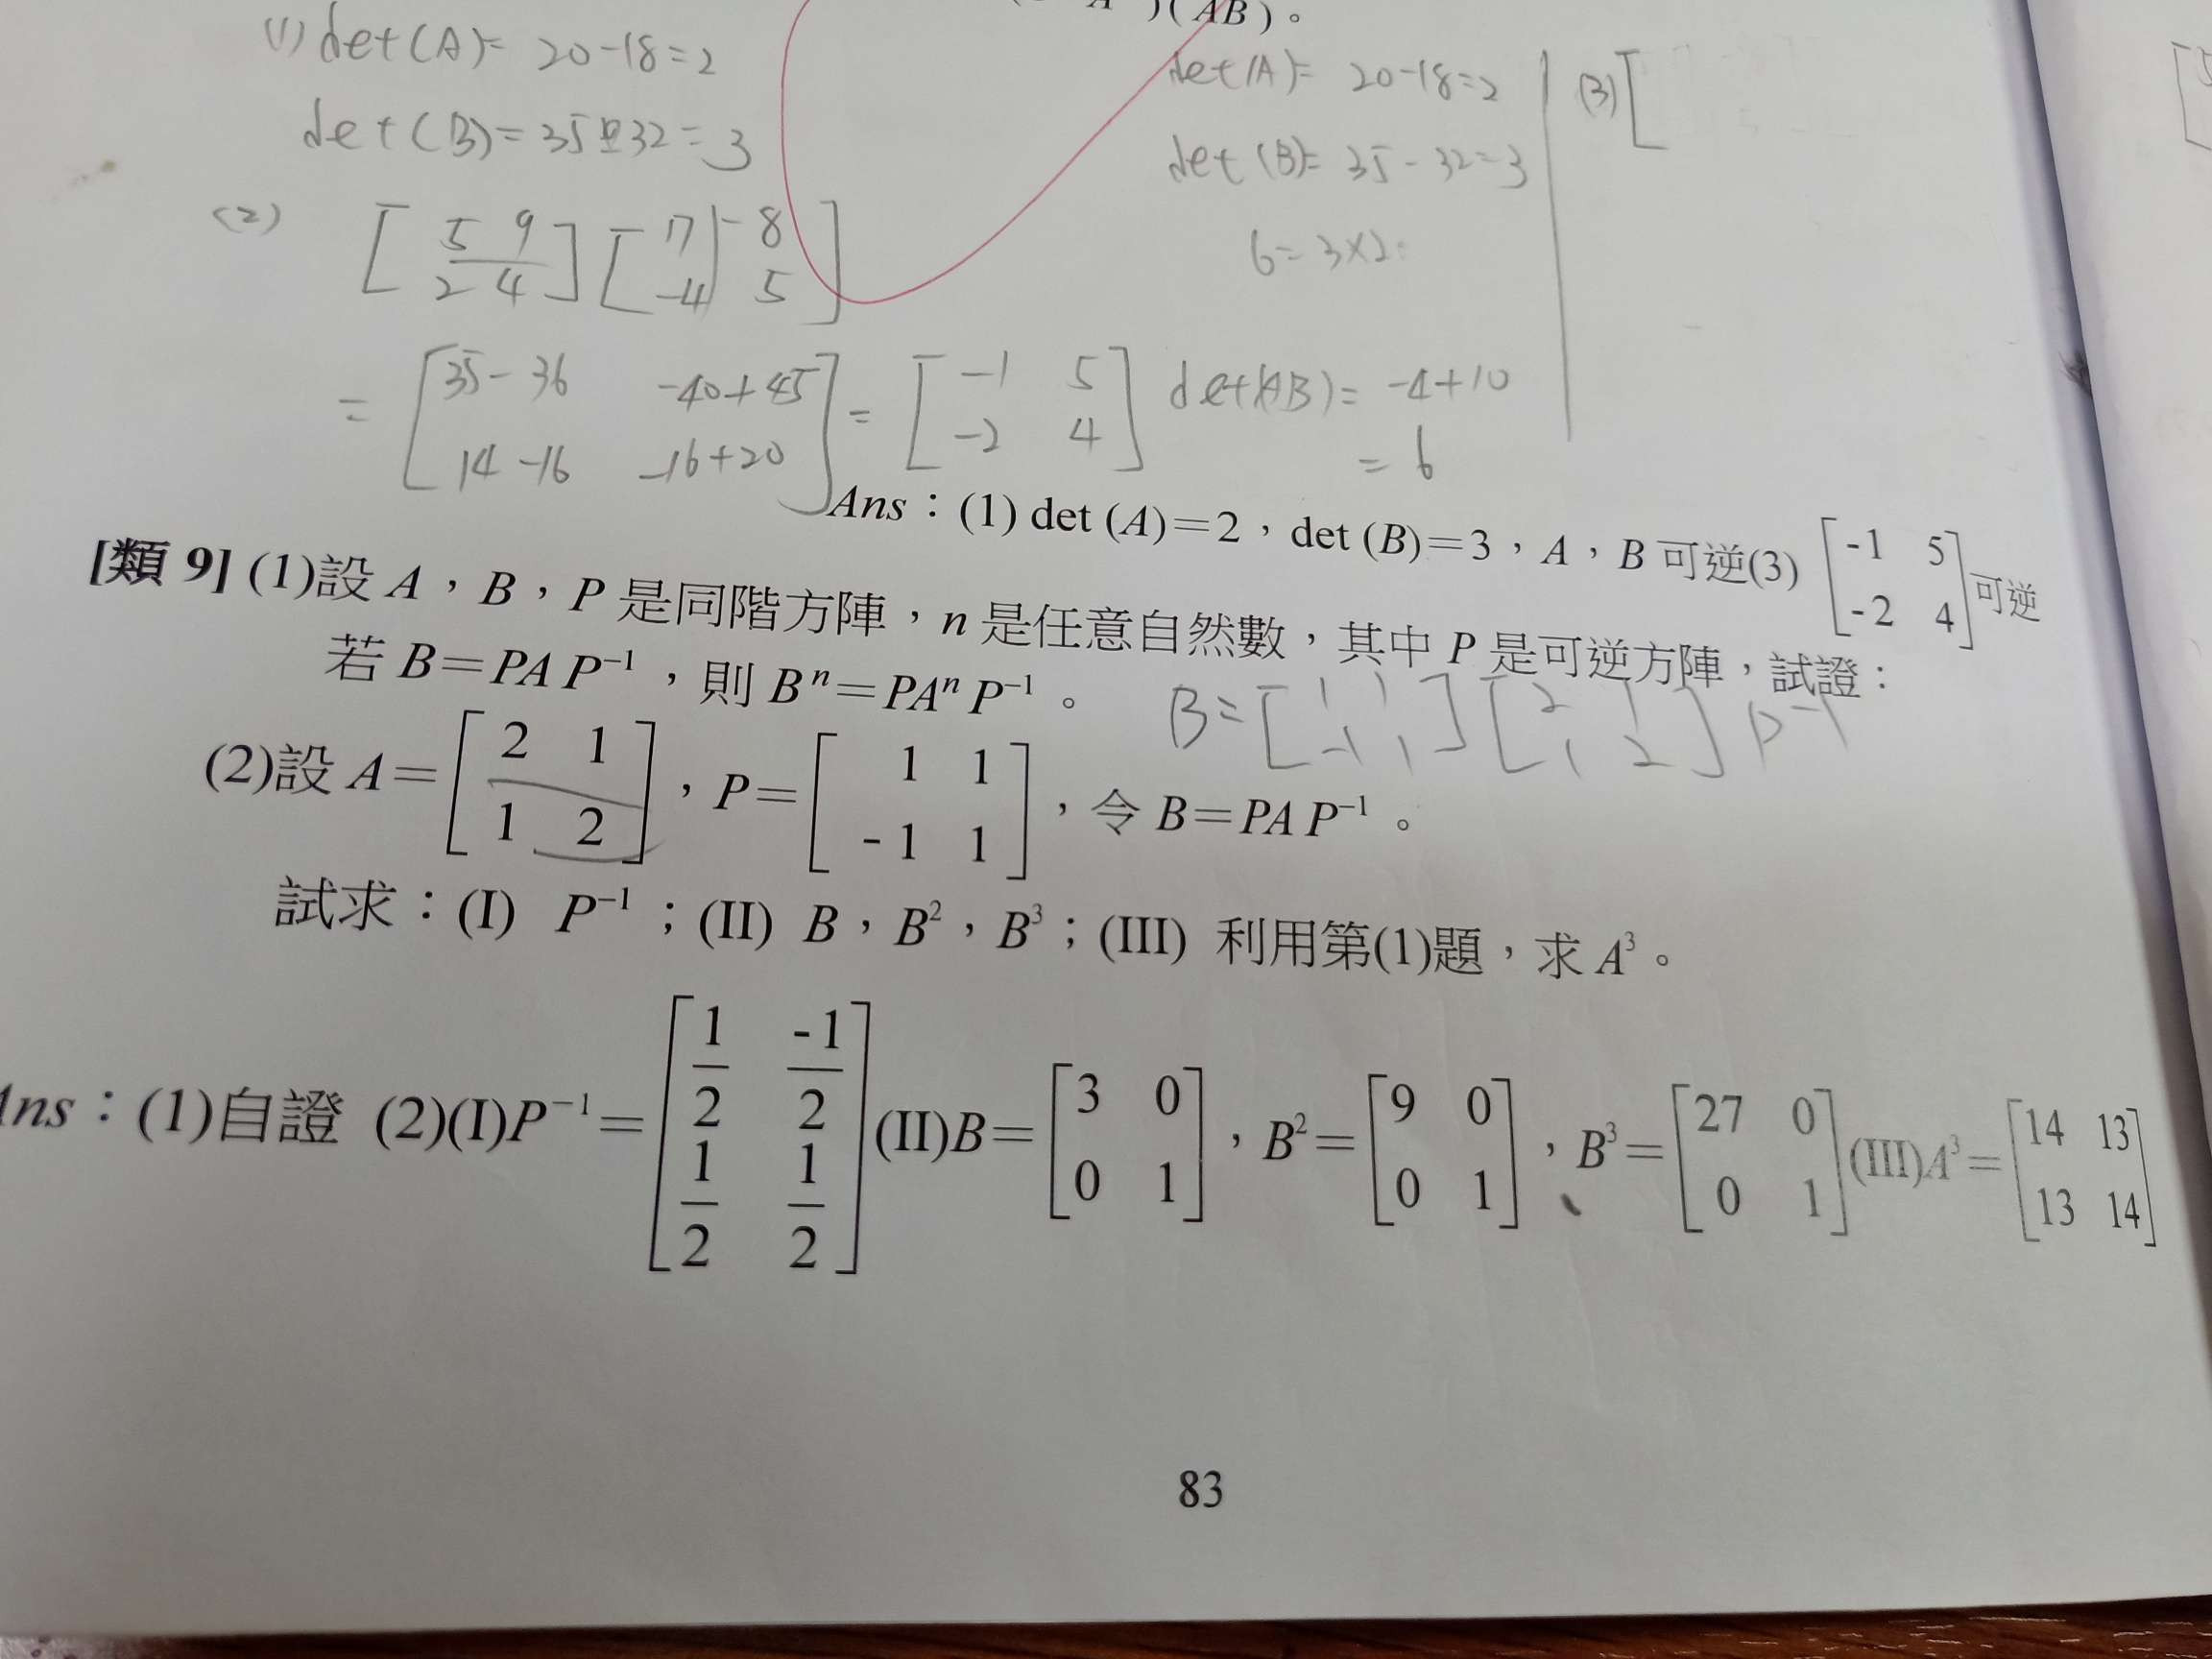 )(AB)。
(1) det(A)= 20-18=2
det(B)=35-32=3
det(A)= 20-18=2
det(B)= 35-32=3
6=3×2
(3) [
(2) [5 9 2 4] [7 -8 -4 5]
= [35-36 -40+45 14-16 -16+20] = [-1 5 -2 4] det(AB)= -4+10
= 6
Ans：(1) det (A)=2，det (B)=3，A，B 可逆(3) [-1 5 -2 4] 可逆
[類 9] (1)設 A，B，P 是同階方陣，n 是任意自然數，其中 P 是可逆方陣，試證：
若 B=PAP⁻¹，則 Bⁿ=PAⁿP⁻¹。
B= [1 1 -1 1] [2 1 1 2] P⁻¹
(2)設 A= [2 1 1 2]，P= [1 1 -1 1]，令 B=PAP⁻¹。
試求：(I) P⁻¹；(II) B，B²，B³；(III) 利用第(1)題，求 A³。
Ans：(1)自證 (2)(I)P⁻¹= [1/2 -1/2 1/2 1/2] (II)B= [3 0 0 1]，B²= [9 0 0 1]，B³= [27 0 0 1] (III)A³= [14 13 13 14]
83